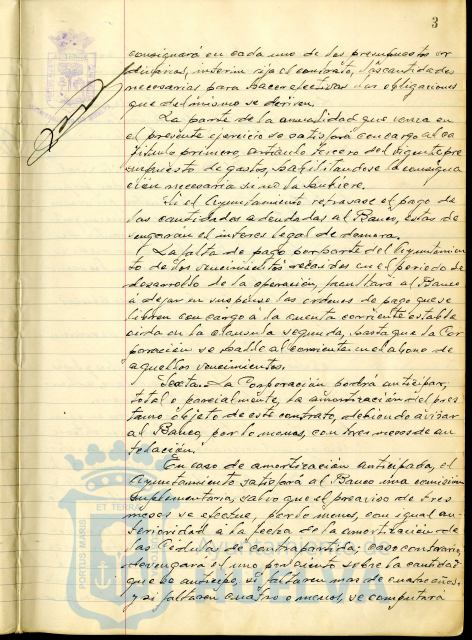 3
consignará en cada uno de los presupuestos or
dinarios, interin rija el contrato, las cantidades
necesarias para hacer efectivas las obligaciones
que del mismo se deriven.
La parte de la anualidad que venza en
el presente ejercicio se satisfará con cargo al ca
pítulo primero, artículo tercero del vigente pre
supuesto de gastos, habilitandose la consigna
ción necesaria si no la hubiere.
Si el Ayuntamiento retrasase el pago de
las cantidades adeudadas al Banco, éstas de
vengarán el interes legal de demora.
La falta de pago por parte del Ayuntamien
to de los vencimientos recaidos en el periodo de
desarrollo de la operación, facultará al Banco
a dejar en suspenso las ordenes de pago que se
libren con cargo á la cuenta corriente estable
cida en la clausula segunda, hasta que la Cor
poración se halle al corriente en el abono de
aquellos vencimientos.
Sexta.- La Corporación podrá anticipar,
total o parcialmente, la amortización del pres
tamo objeto de este contrato, debiendo avisar
al Banco, por lo menos, con tres meses de an
telación.
En caso de amortización anticipada, el
Ayuntamiento satisfará al Banco una comisión
suplementaria, salvo que el preaviso de tres
meses se efectue, por lo menos, con igual an
terioridad a la fecha de la amortización de
las Cédulas de contrapartida; caso contrario,
devengará el uno por ciento sobre la cantidad
que se anticipe, si faltaren mas de cuatro años,
y si faltaren cuatro o menos, se computará
ET TERRA
PORTUS MARIS
Ayuntamiento de